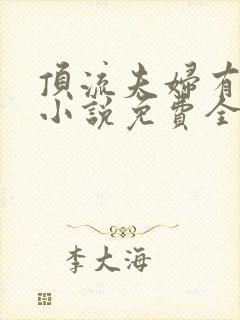 頂流夫婦有
小說免費全
李大海